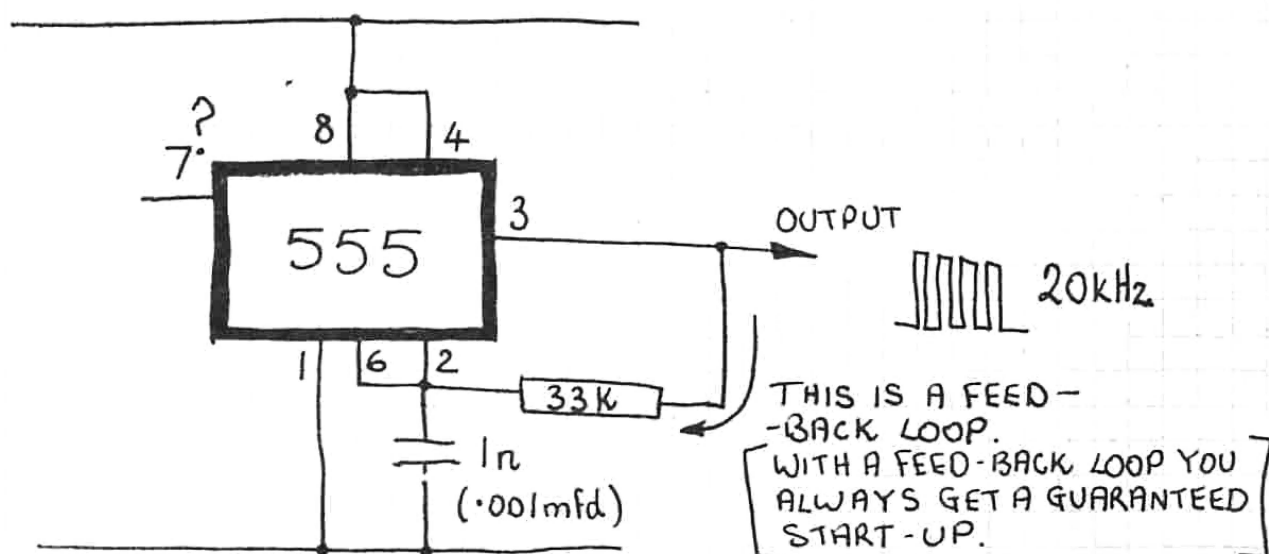 ?
7
8
4
555
3
OUTPUT
20kHz.
1
6
2
33K
1n
(.001mfd)
THIS IS A FEED-
-BACK LOOP.
[WITH A FEED-BACK LOOP YOU
ALWAYS GET A GUARANTEED
START-UP.]